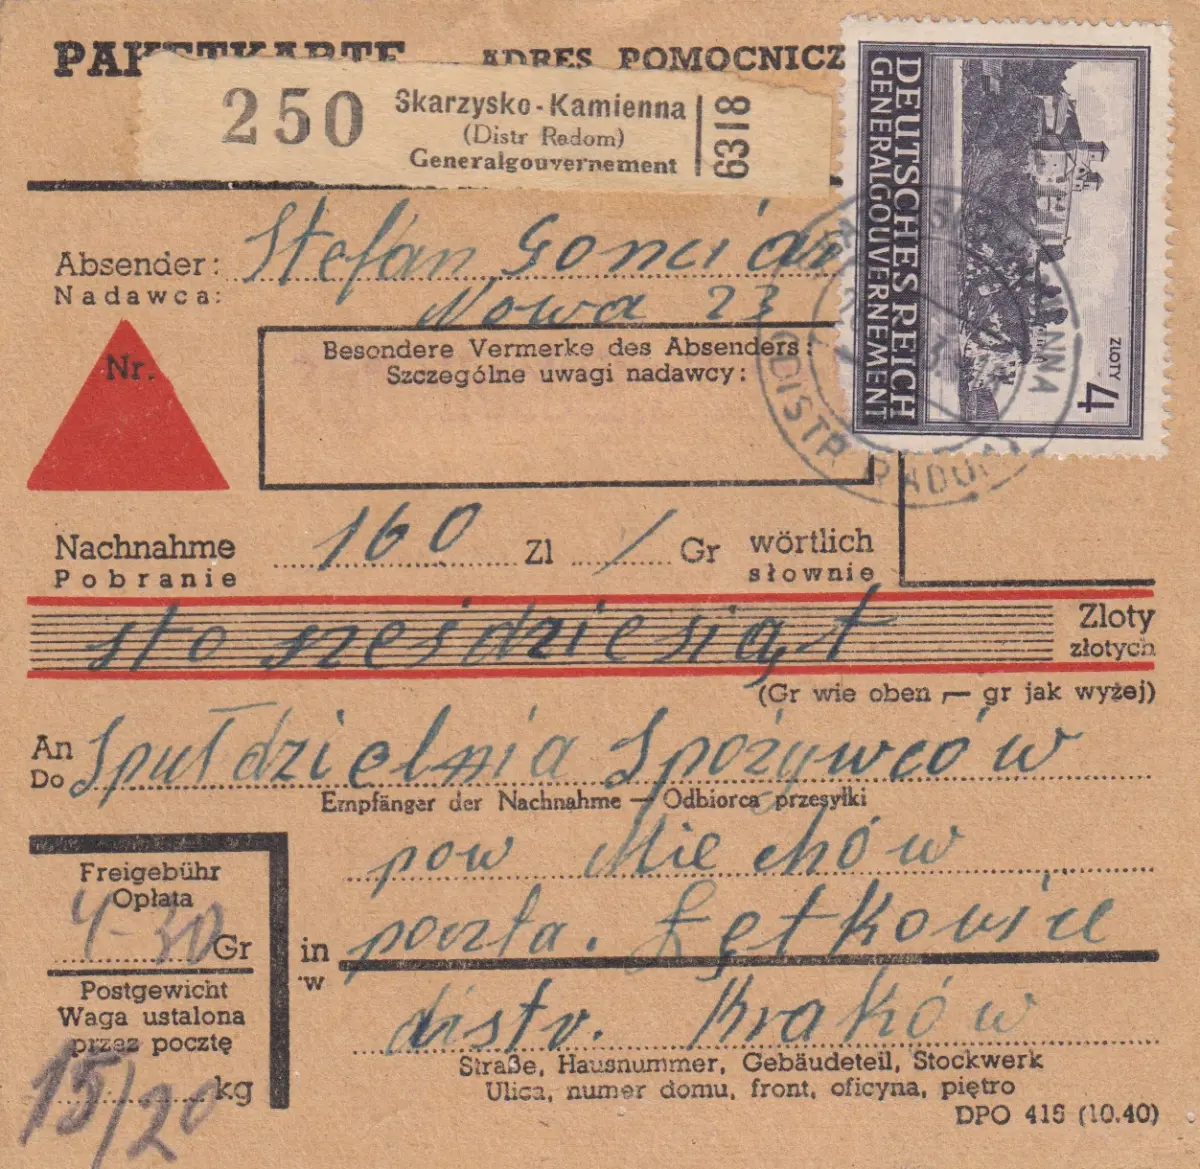 PAKETKARTE ADRES POMOCNICZ
250 Skarzysko-Kamienna
(Distr Radom)
Generalgouvernement
6318
DEUTSCHES REICH
GENERALGOUVERNEMENT
4 ZŁOTY
DISTR RADOM
Absender: Stefan
Nadawca:
Nowa 23
Nr.
Besondere Vermerke des Absenders:
Szczególne uwagi nadawcy:
Nachnahme 160 Zl / Gr wörtlich
Pobranie słownie
sto sześdziesiąt Zloty
złotych
(Gr wie oben — gr jak wyżej)
An Spułdzielnia Spożywców
Do
Empfänger der Nachnahme — Odbiorca przesyłki
pow Miechów
Freigebühr
Opłata
4-30 Gr
in poczta. Łętkowice
w
Postgewicht
Waga ustalona
przez pocztę
15/20 kg
distr. Kraków
Straße, Hausnummer, Gebäudeteil, Stockwerk
Ulica, numer domu, front, oficyna, piętro
DPO 415 (10.40)